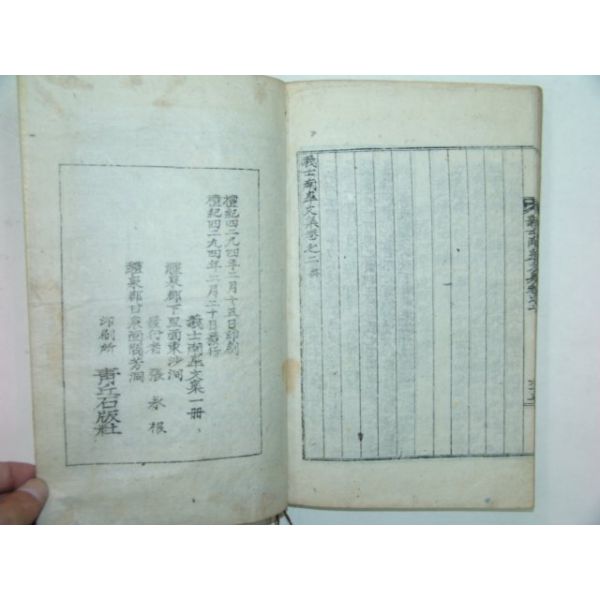 義士南皐文集卷之二終
檀紀四二九四年二月十五日印刷
檀紀四二九四年二月二十日發行
義士南皐文集一冊
醴泉郡下里面東沙洞
發行者 張 根
醴泉郡甘泉面 芳洞
印刷所 靑丘石版社